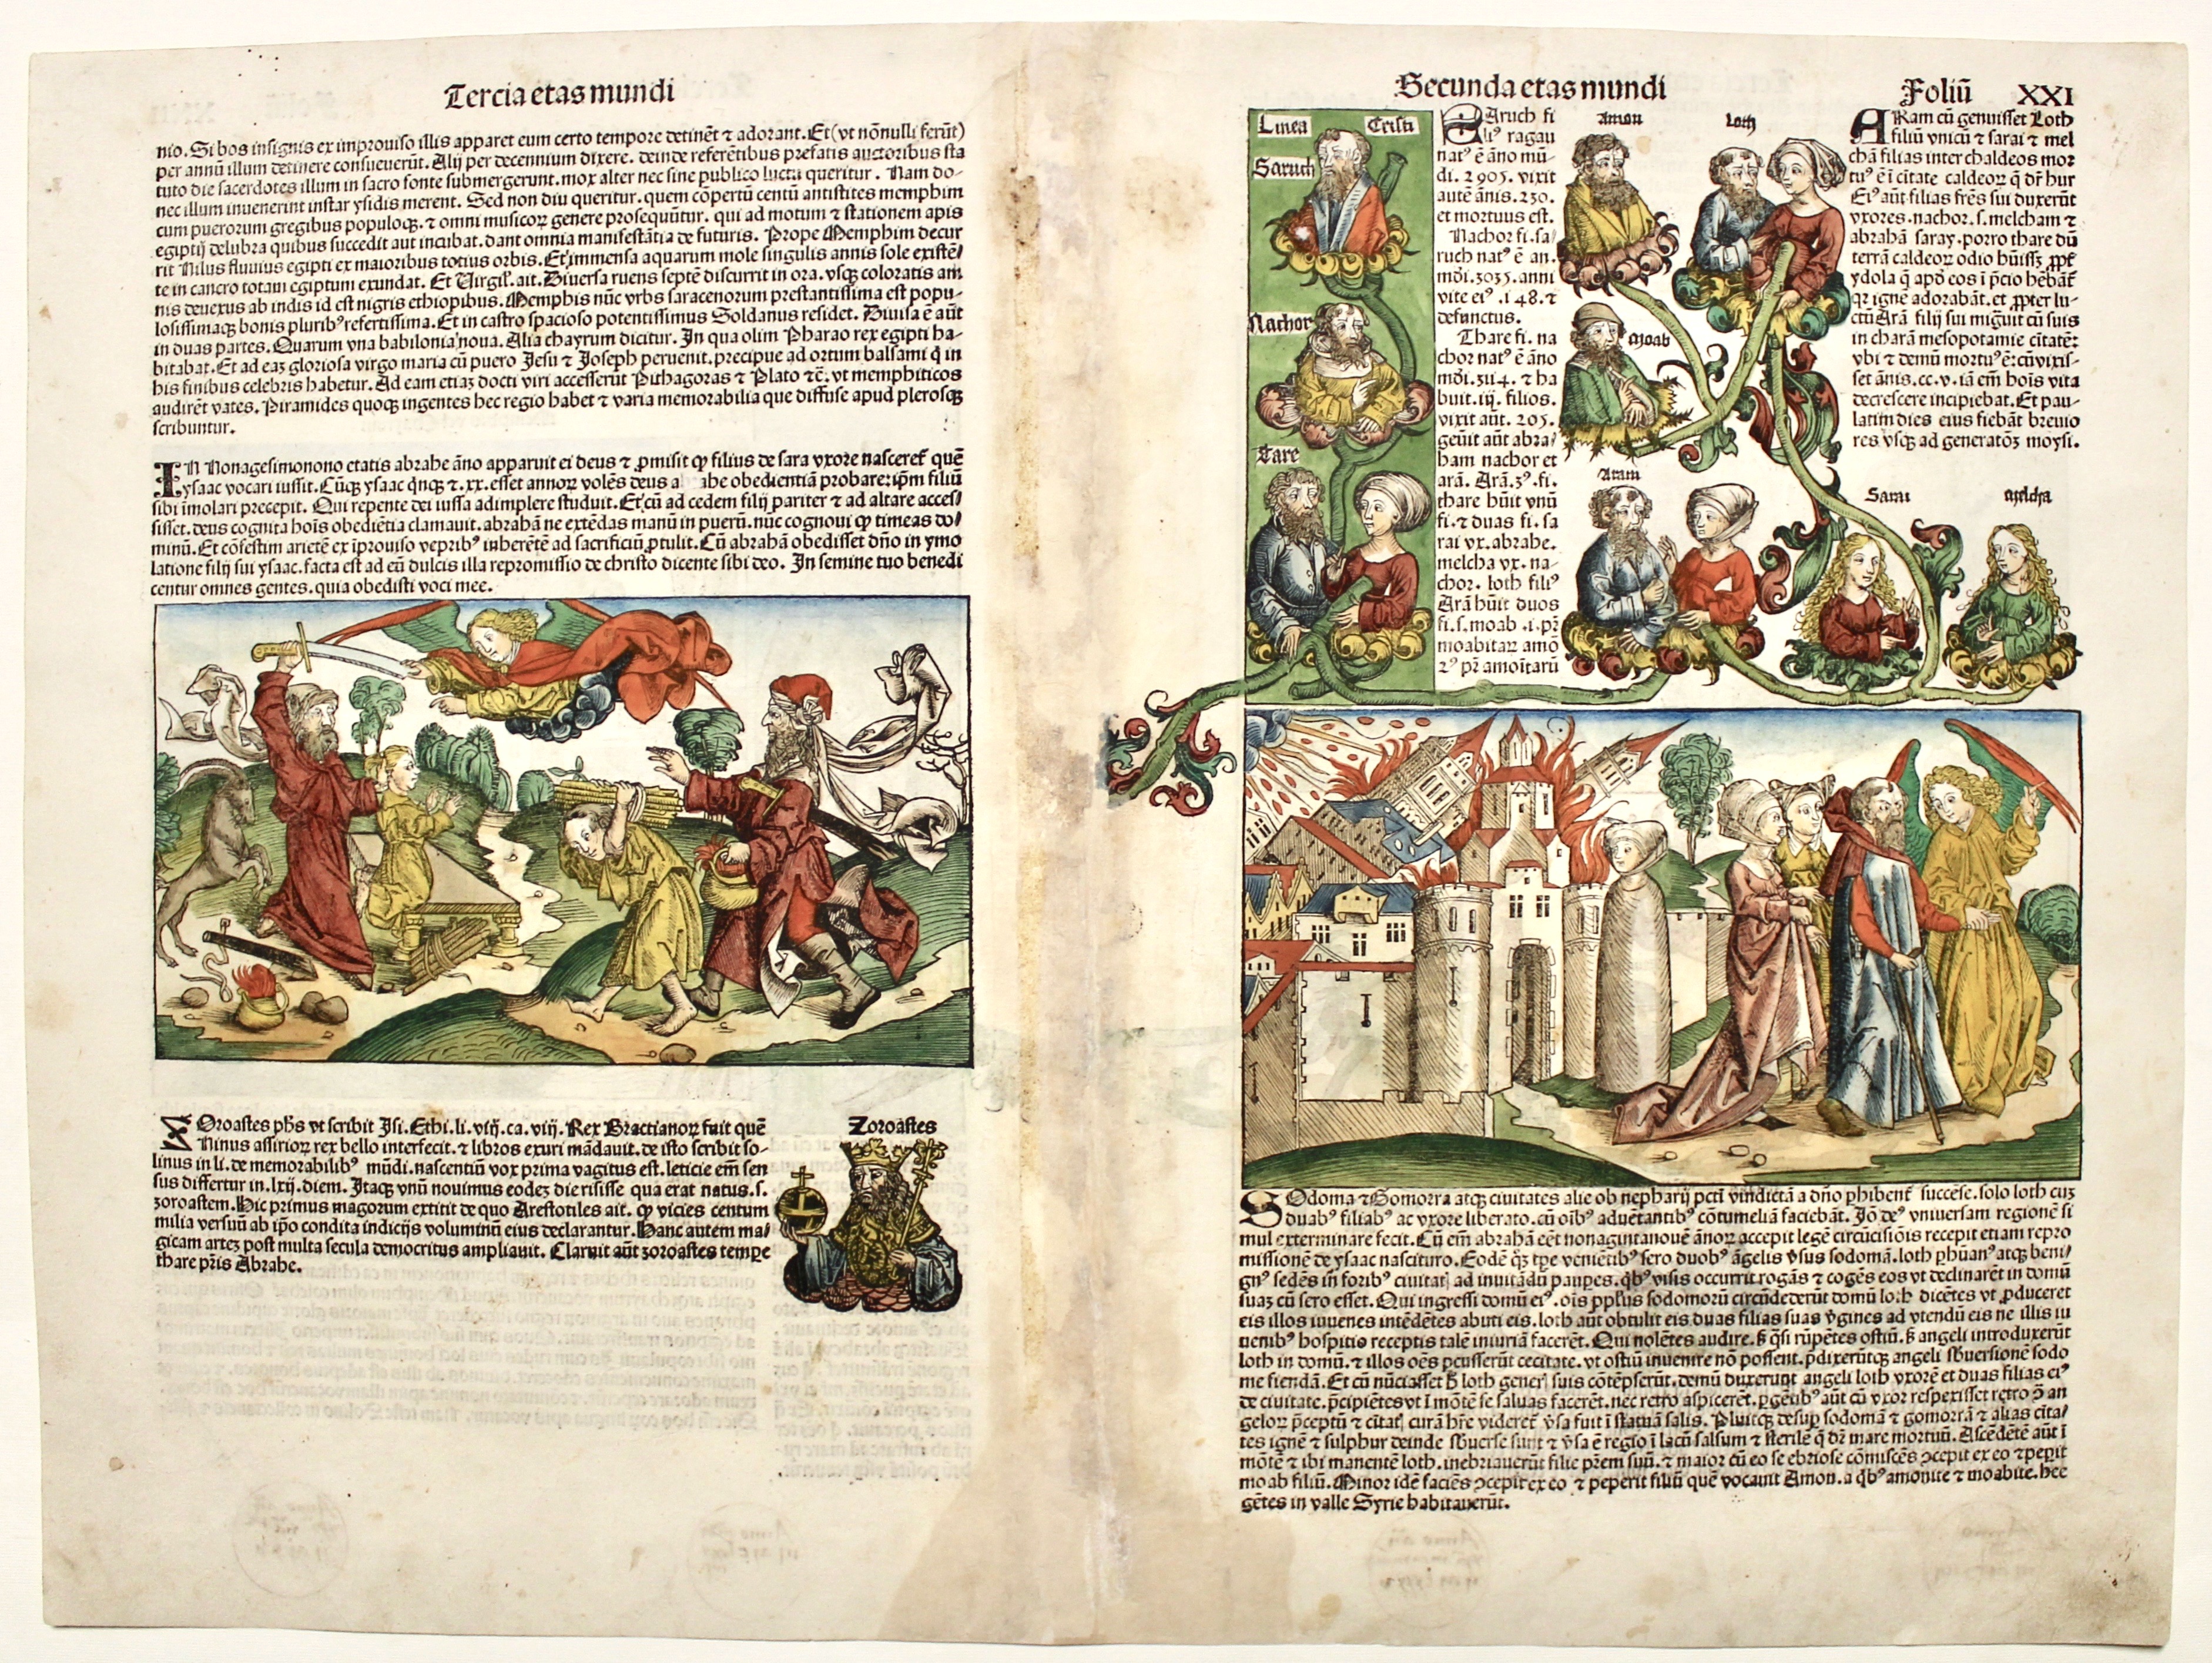 Tercia etas mundi
nio. Si bos insignis ex improuiso illis apparet eum certo tempore detinēt ⁊ adorant. Et (vt nōnulli ferūt)
per annū illum detinere consueuerūt. Alij per decennium dixere. deinde referētibus prefatis auctoribus sta
tuto die sacerdotes illum in sacro fonte submergerunt. mox alter nec sine publico luctu queritur. Nam do-
nec illum inuenerint instar ysidis merent. Sed non diu queritur. quem cōpertū centū antistites memphim
cum puerorum gregibus populoqꝫ. ⁊ omni musicoꝝ genere prosequūtur. qui ad motum ⁊ stationem apis
egiptij delubra quibus succedit aut incubat. dant omnia manifestātia de futuris. Prope Memphim decur
rit Nilus fluuius egipti ex maioribus totius orbis. Et immensa aquarum mole singulis annis sole existē/
te in cancro totam egiptum exundat. Et Virgilꝰ. ait. Diuersa ruens septē discurrit in ora. vsqꝫ coloratis am
nis deuexus ab indis id est nigris ethiopibus. Memphis nūc vrbs saracenorum prestantissima est popu-
losissimaqꝫ bonis pluribꝰ refertissima. Et in castro spacioso potentissimus Soldanus residet. Diuisa ē aūt
in duas partes. Quarum vna babilonia noua. Alia chayrum dicitur. In qua olim Pharao rex egipti ha-
bitabat. Et ad eaꝫ gloriosa virgo maria cū puero Jesu ⁊ Joseph peruenit. precipue ad ortum balsami q̄ in
his finibus celebris habetur. Ad eam etiaꝫ docti viri accesserūt Pithagoras ⁊ Plato ⁊c̄. vt memphiticos
audirēt vates. Piramides quoqꝫ ingentes hec regio habet ⁊ varia memorabilia que diffuse apud plerosqꝫ
scribuntur.
IN Nonagesimonono etatis abrahe āno apparuit ei deus ⁊ ꝓmisit ꝙ filius de sara vxore nasceret̄ quē
ysaac vocari iussit. Cūqꝫ ysaac q̄nqꝫ ⁊ .xx. esset annoꝝ volēs deus a he obedientiā probare: ip̄m filiū
sibi īmolari precepit. Qui repente dei iussa adimplere studuit. Et cū ad cedem filij pariter ⁊ ad altare acces/
sisset. deus cognita hoīs obediētia clamauit. abrahā ne extēdas manū in puerū. nūc cognoui ꝙ timeas do/
minū. Et cōfestim arietē ex īprouiso vepribꝰ inherētē ad sacrificiū ꝓtulit. Cū abrahā obedisset dn̄o in ymo
latione filij sui ysaac. facta est ad eū dulcis illa repromissio de christo dicente sibi deo. In semine tuo benedi
centur omnes gentes. quia obedisti voci mee.
ZOroastes ph̄s vt scribit Isi. Ethi. li. viij. ca. viij. Rex Bractianoꝝ fuit quē
Ninus assirioꝝ rex bello interfecit. ⁊ libros exuri mādauit. de isto scribit so-
linus in li. de memorabilibꝰ mūdi. nascentiū vox prima vagitus est. leticie em̄ sen
sus differtur in .lxij. diem. Itaqꝫ vnū nouimus eodeꝫ die risisse qua erat natus. s.
zoroastem. Hic primus magorum extitit de quo Arestotiles ait. ꝙ vicies centum
milia versuū ab ip̄o condita indicijs voluminū eius declarantur. Hanc autem ma/
gicam arteꝫ post multa secula democritus ampliauit. Claruit aūt zoroastes tempe
thare pr̄is Abrahe.
Zoroastes
Secunda etas mundi
Foliū XXI
Linea Cristi
Saruch
Nachor
Tare
SAruch fi
liꝰ ragau
natꝰ ē āno mū-
di. 2905. vixit
autē ānis. 230.
et mortuus est.
Nachor fi. sa/
ruch natꝰ ē an.
mōi. 3035. anni
vite eiꝰ. 148. ⁊
defunctus.
Thare fi. na
chor natꝰ ē āno
mōi. 3114. ⁊ ha
buit. iij. filios.
vixit aūt. 205.
genuit aūt abra/
ham nachor et
arā. Arā. 3ꝰ. fi.
thare hūit vnū
fi. ⁊ duas fi. sa
rai vx. abrahe.
melcha vx. na-
chor. loth filiꝰ
Arā hūit duos
fi. s. moab .i. pr̄
moabitaꝝ amō
2ꝰ pr̄ amoītarū
Amon
Loth
Moab
Aram
Sarai
Melcha
ARam cū genuisset Loth
filiū vnicū ⁊ sarai ⁊ mel
chā filias inter chaldeos mor
tuꝰ ē ī citate caldeoꝝ q̄ dr̄ hur
Eiꝰ aūt filias frēs sui duxerūt
vxores. nachor. s. melcham ⁊
abrahā saray. porro thare dū
terrā caldeoꝝ odio hūissꝫ ꝓpt̄
ydola q̄ apd̄ eos ī p̄cio hēbāt̄
qꝛ ignē adorabāt. et ꝓpter lu-
ctū Arā filij sui mig̃uit cū suis
in charā mesopotamie cītatē:
vbi ⁊ demū mortuꝰ ē: cū vixis-
set ānis. cc. v. iā em̄ hoīs vita
decrescere incipiebat. Et pau-
latim dies eius fiebāt breuio
res vsqꝫ ad generatōꝫ moysi.
SOdoma ⁊ Gomorra atqꝫ ciuitates alie ob nepharij pctī vindictā a dn̄o ꝓhibent̄ succēse. solo loth cuꝫ
duabꝰ filiabꝰ ac vxore liberato. cū oībꝰ aduētantibꝰ cōtumeliā faciebāt. Jō deꝰ vniuersam regionē si
mul exterminare fecit. Cū em̄ abrahā eēt nonagintanouē ānoꝝ accepit legē circūcisiōis recepit etiam repro
missionē de ysaac nascituro. Eodē q̄ꝫ tꝑe veniētibꝰ sero duobꝰ āgelis v̄sus sodomā. loth ꝑhūanꝰ atqꝫ beni/
gnꝰ sedēs in foribꝰ ciuitatꝭ ad inuitādū paupes. q̄bꝰ visis occurrit rogās ⁊ cogēs eos vt declinarēt in domū
suaꝫ cū sero esset. Qui ingressi domū eiꝰ. oīs pplūs sodomorū circūdederūt domū loth dicētes vt ꝓduceret
eis illos iuuenes intēdētes abuti eis. loth aūt obtulit eis duas filias suas v̄gines ad vtendū eis ne illis iu
uenibꝰ hospitio receptis talē iniuriā facerēt. Qui nolētes audire. ꝫ q̄si rūpētes ostiū. ꝫ angeli introduxerūt
loth in domū. ⁊ illos oēs pcusserūt cecitate. vt ostiū inuenire nō possent. p̄dixerūtqꝫ angeli sbuersionē sodo
me fiendā. Et cū nūciasset ꝫ loth generꝭ suis cōtēpserūt. demū duxerunt angeli loth vxorē et duas filias eiꝰ
de ciuitate. p̄cipiētes vt ī mōtē se saluas facerēt. nec retro aspicerēt. ꝑgētibꝰ aūt cū vxor respexisset retro ꝯ an
geloꝝ p̄ceptū ⁊ cītatꝭ curā hr̄e videret̄ v̄sa fuit ī statuā salis. Pluitqꝫ desuꝑ sodomā ⁊ gomorrā ⁊ alias cīta/
tes ignē ⁊ sulphur deinde sbuerse sunt ⁊ v̄sa ē regio ī lacū salsum ⁊ sterilē q̄ dr̄ mare mortuū. Ascēdētē aūt ī
mōtē ⁊ ibi manentē loth. inebriauerūt filie pr̄em suū. ⁊ maior cū eo se ebriose cōmiscēs ꝯcepit ex eo ⁊ peperit
moab filiū. Minor idē faciēs ꝯcepit ex eo ⁊ peperit filiū quē vocauit Amon. a q̄bꝰ amonite ⁊ moabite. hee
gētes in valle Syrie habitauerūt.